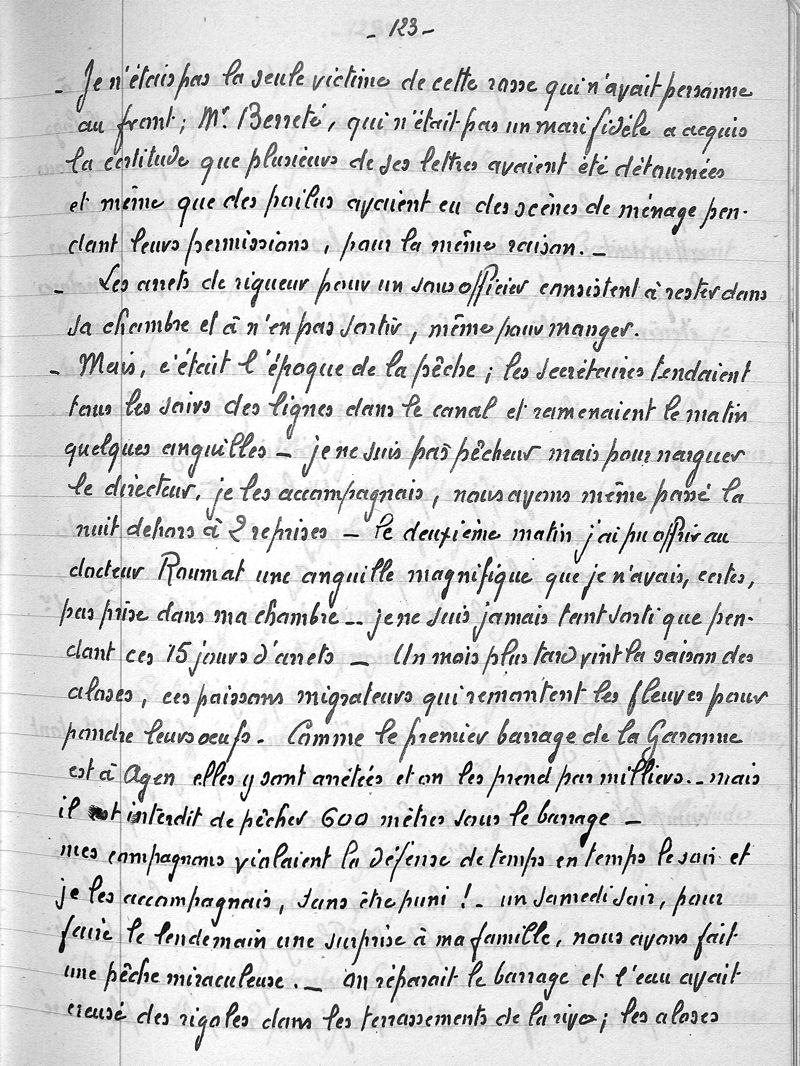 - 123 -
- Je n'étais pas la seule victime de cette rosse qui n'avait personne
au front ; Mr. Berreté, qui n'était pas un mari fidèle a acquis
la certitude que plusieurs de ses lettres avaient été détournées
et même que des poilus avaient eu des scènes de ménage pen-
dant leurs permissions, pour la même raison. -
- Les arrets de rigueur pour un sous officier consistent à rester dans
sa chambre et à n'en pas sortir, même pour manger.
- Mais, c'était l'époque de la pêche ; les secrétaires tendaient
tous les soirs des lignes dans le canal et ramenaient le matin
quelques anguilles - je ne suis pas pêcheur mais pour narguer
le directeur, je les accompagnais, nous avons même passé la
nuit dehors à 2 reprises - le deuxième matin j'ai pu offrir au
docteur Roumat une anguille magnifique que je n'avais, certes,
pas prise dans ma chambre - je ne suis jamais tant sorti que pen-
dant ces 15 jours d'arrets - Un mois plus tard vint la saison des
aloses, ces poissons migrateurs qui remontent les fleuves pour
pondre leurs oeufs. Comme le premier barrage de la Garonne
est à Agen elles y sont arrêtées et on les prend par milliers. - mais
il est interdit de pêcher 600 mètres sous le barrage -
mes compagnons violaient la défense de temps en temps le soir et
je les accompagnais, sans être puni ! - un samedi soir, pour
faire le lendemain une surprise à ma famille, nous avons fait
une pêche miraculeuse. - On réparait le barrage et l'eau avait
creusé des rigoles dans les terrassements de la rive ; les aloses